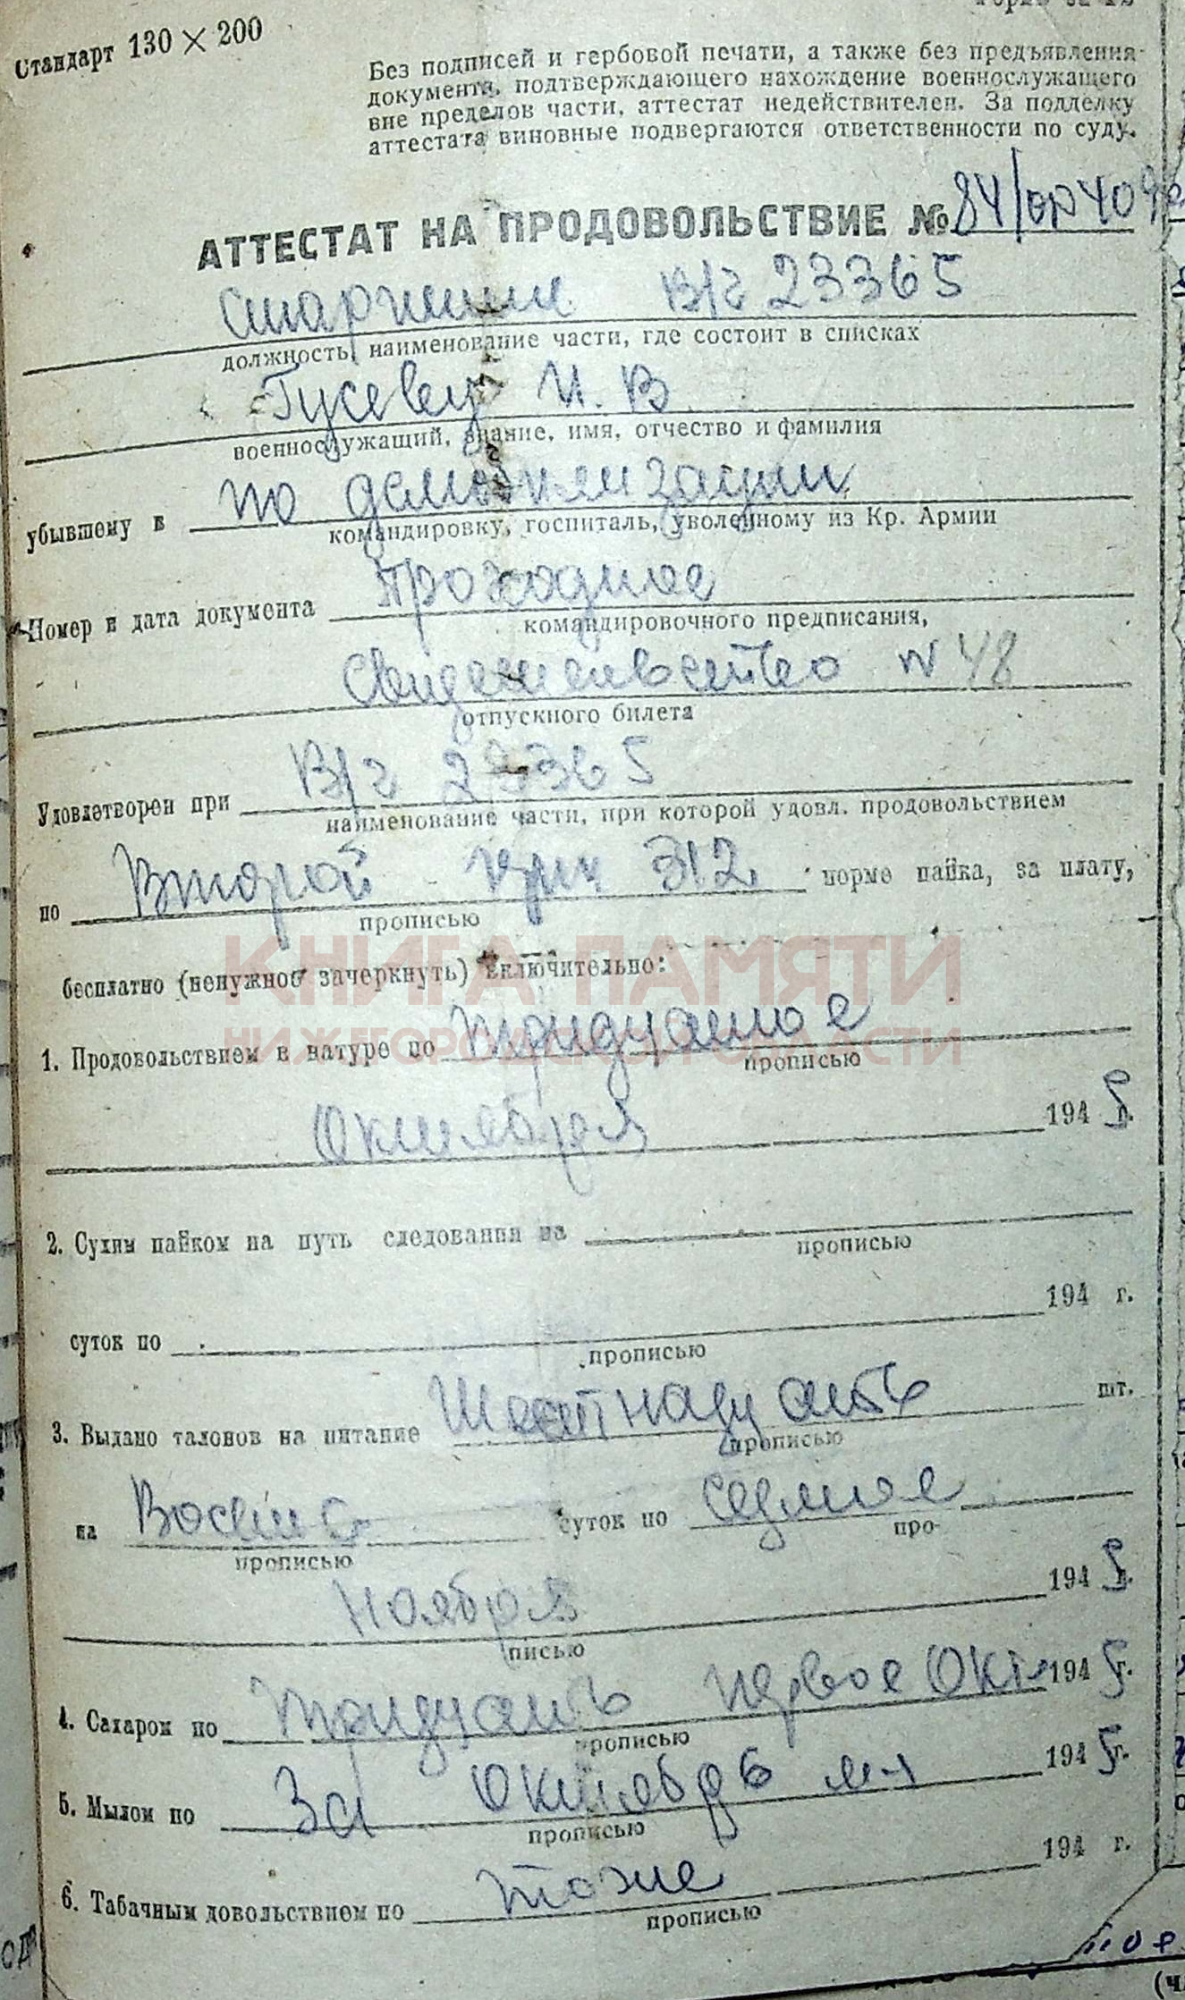 Стандарт 130 × 200
Без подписей и гербовой печати, а также без предъявления
документа, подтверждающего нахождение военнослужащего
вне пределов части, аттестат недействителен. За подделку
аттестата виновные подвергаются ответственности по суду.
АТТЕСТАТ НА ПРОДОВОЛЬСТВИЕ № 84/
Старшине В/г 23365
должность, наименование части, где состоит в списках
Гусеву И. В
военнослужащий, звание, имя, отчество и фамилия
убывшему в по демобилизации
командировку, госпиталь, уволенному из Кр. Армии
Номер и дата документа Проходное
командировочного предписания,
Свидетельвство N 48
отпускного билета
Удовлетворен при В/г 23365
наименование части, при которой удовл. продовольствием
по Второй 312 норме пайка, за плату,
прописью
бесплатно (ненужное зачеркнуть) включительно:
КНИГА ПАМЯТИ
НИЖЕГОРОДСКОЙ ОБЛАСТИ
1. Продовольствием в натуре по Тридцатое
прописью
Октября 1945 г.
2. Сухим пайком на путь следования на
прописью
суток по 194 г.
прописью
3. Выдано талонов на питание Шестнадцать шт.
прописью
на Восемь суток по седмое
прописью про-
Ноября 1945 г.
писью
4. Сахаром по Тридцать первое Окт 1945 г.
прописью
5. Мылом по За октябрь м-ц 1945 г.
прописью
6. Табачным довольствием по тоже 194 г.
прописью